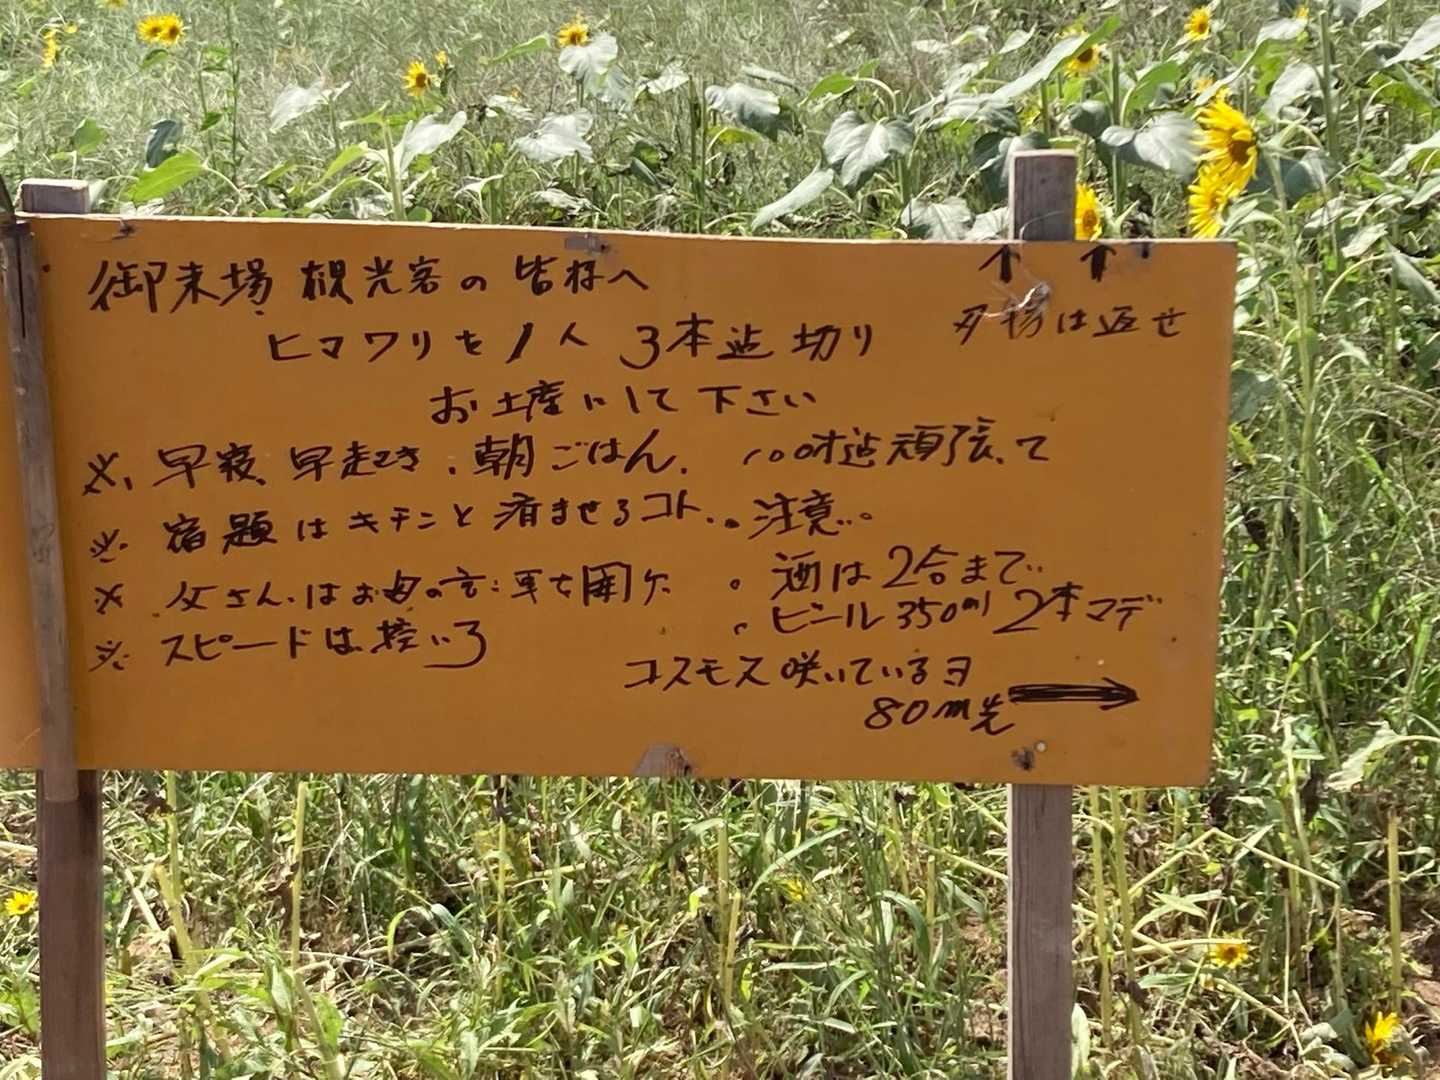 御来場 観光客の 皆様へ
ヒマワリを 1人 3本迄 切り
は返せ
お土産にして 下さい
※、早寝、早起き、朝ごはん、
100才迄頑張って
※ 宿題はキチンと済ませるコト、
。注意。
※ 父さんはお母の言う事を聞ケ
。酒は2合まで
※ スピードは控いろ
。ビール350ml 2本マデ
コスモス咲いているヨ
80m先